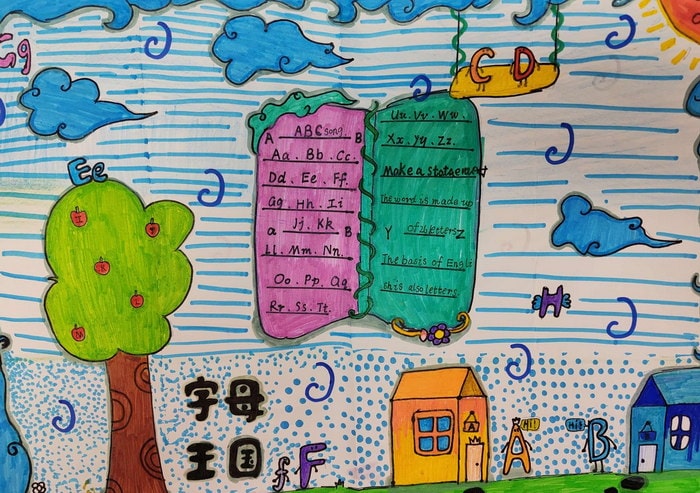 Gg
C D
ABC song
A B
Aa . Bb . Cc.
Dd . Ee . Ff.
Gg . Hh . Ii
Jj . Kk
a B
Ll . Mm . Nn.
Oo . Pp . Qq
Rr . Ss . Tt.
Uu . Vv . Ww.
Xx . Yy . Zz.
Make a statgement
The word is made up
Y of letters Z
The basis of Engli
shis also letters
Ee
H
字母
王国
f F
A
Hi!
A
Hi!
B